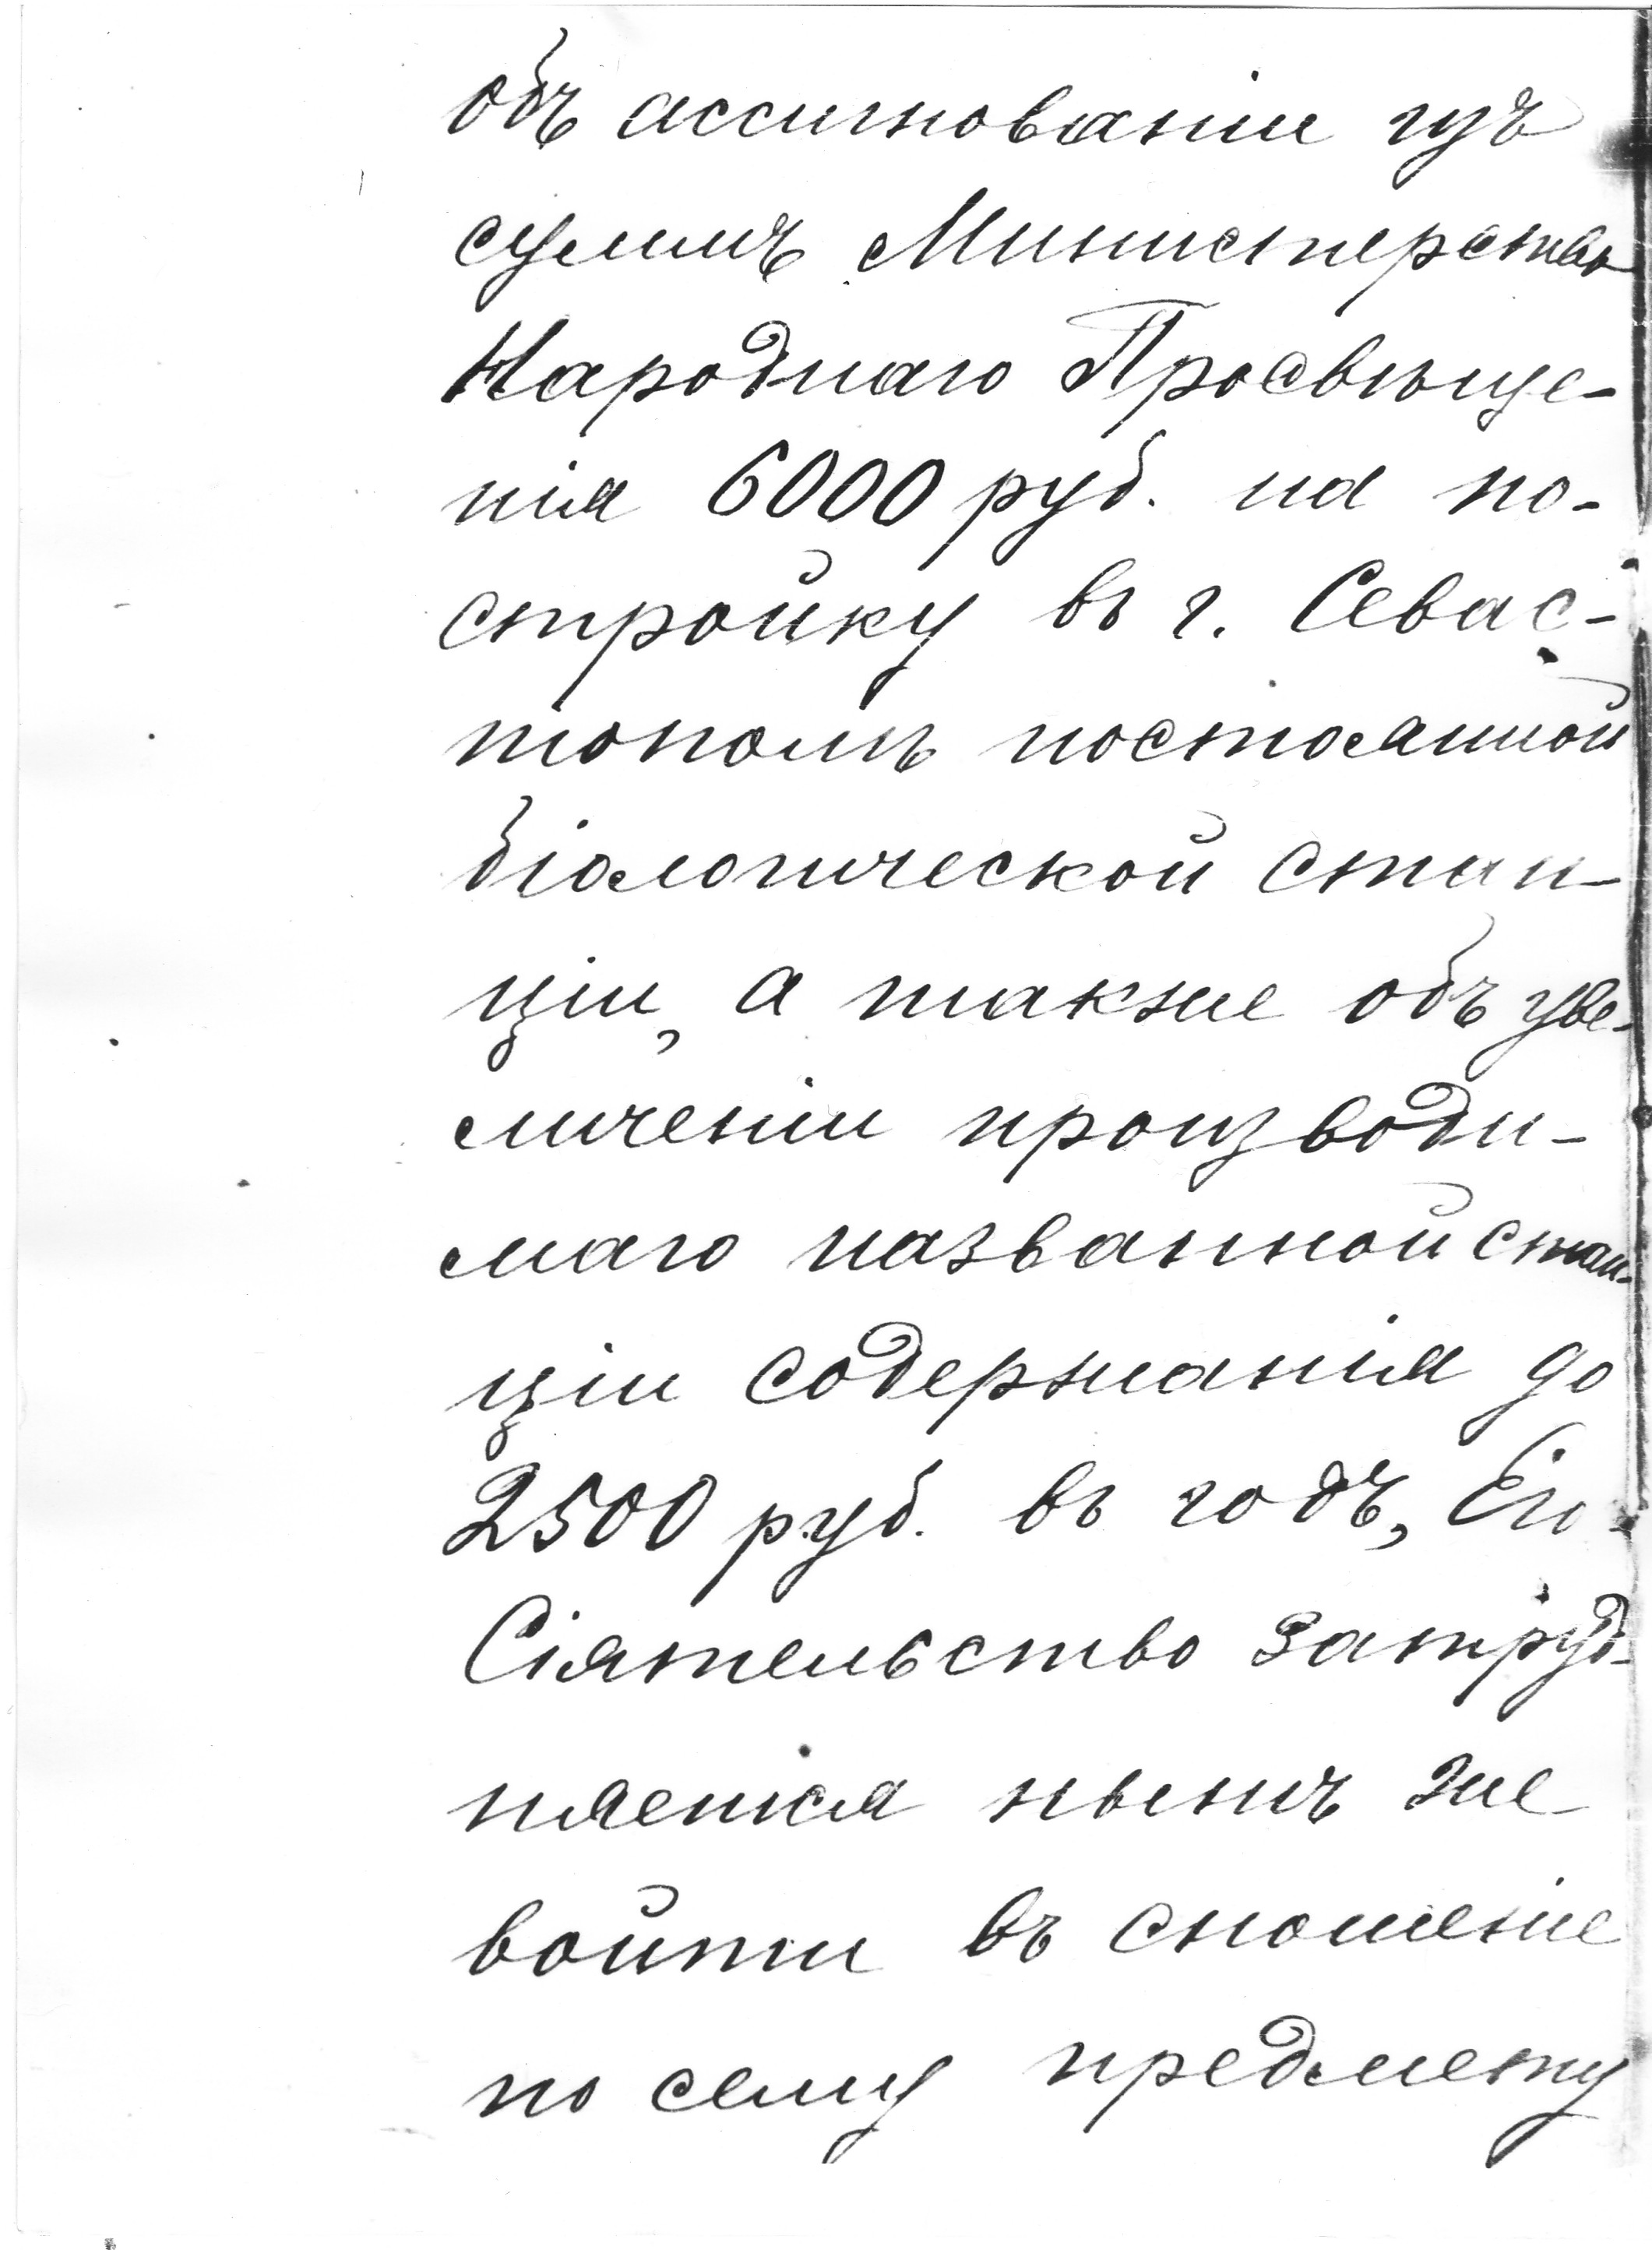 объ ассигнованіи изъ
суммъ Министерства
Народнаго Просвѣще-
нія 6000 руб. на по-
стройку въ г. Севас-
тополѣ постоянной
біологической стан-
ціи, а также объ уве-
личеніи производи-
маго названной стан-
ціи содержанія до
2500 руб. въ годъ, Его
Сіятельство затруд-
няется нынѣ же
войти въ сношеніе
по сему предмету